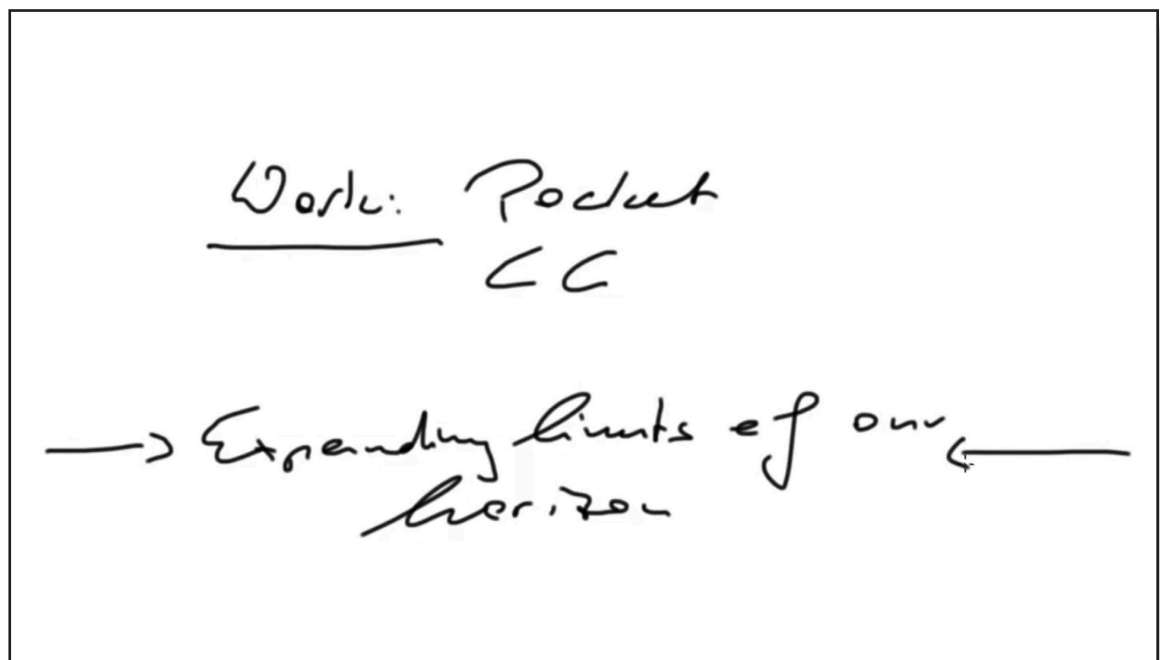 Work: Pocket
CC
→ Expanding limits of our ←
horizon